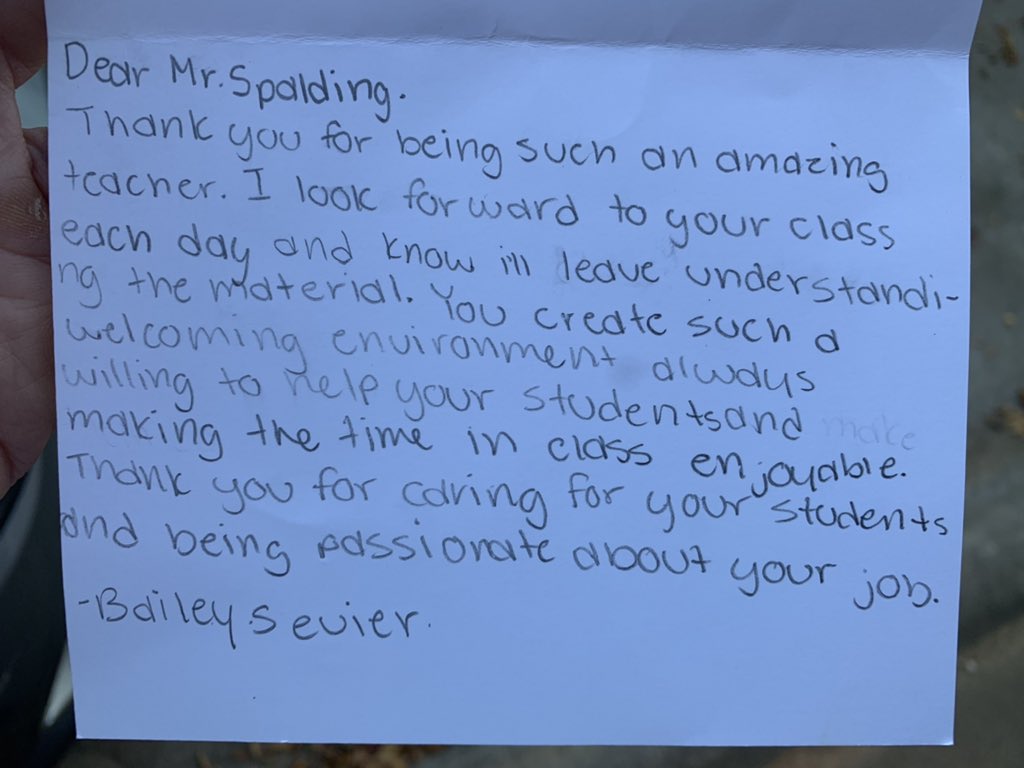 Dear Mr. Spalding.
Thank you for being such an amazing
teacher. I look forward to your class
each day and know i'll leave understandi-
ng the material. You create such a
welcoming environment always
willing to help your students and make
making the time in class enjoyable.
Thank you for caring for your students
and being passionate about your job.
-Bailey Sevier.